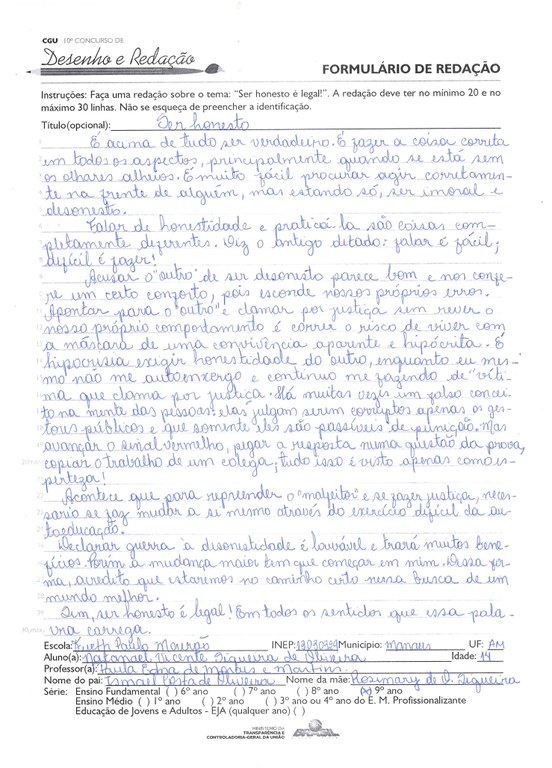 CGU 10º CONCURSO DE
Desenho e Redação
FORMULÁRIO DE REDAÇÃO
Instruções: Faça uma redação sobre o tema: "Ser honesto é legal!". A redação deve ter no mínimo 20 e no
máximo 30 linhas. Não se esqueça de preencher a identificação.
Título(opcional): Ser honesto
É acima de tudo ser verdadeiro. É fazer a coisa correta
em todos os aspectos, principalmente quando se está sem
os olhares alheios. É muito fácil procurar agir corretamen-
te na frente de alguém, mas estando só, ser imoral e
desonesto.
Falar de honestidade e praticá la são coisas com-
pletamente diferentes. Diz o antigo ditado: falar é fácil;
difícil é fazer!
Acusar o "outro" de ser desonesto parece bom e nos confe-
re um certo conforto, pois esconde nossos próprios erros.
Apontar para o "outro" e clamar por justiça sem rever o
nosso próprio comportamento é correr o risco de viver com
a máscara de uma convivência aparente e hipócrita. É
hipocrisia exigir honestidade do outro, enquanto eu mes-
mo não me autoenxergo e continuo me fazendo de "víti-
ma que clama por justiça. Há muitas vezes um falso concei-
to na mente das pessoas: elas julgam serem corruptos apenas os ges-
tores públicos e que somente eles são passíveis de punição. Mas
avançar o sinal vermelho, pegar a resposta numa questão da prova,
copiar o trabalho de um colega, tudo isso é visto apenas como es-
perteza!
Acontece que para repreender o "malfeitor" e se fazer justiça, neces-
sário se faz mudar a si mesmo através do exercício difícil da au-
toeducação.
Declarar guerra à desonestidade é louvável e trará muitos bene-
fícios. Porém a mudança maior tem que começar em mim. Dessa for-
ma, acredito que estaremos no caminho certo nessa busca de um
mundo melhor.
Sim, ser honesto é legal! Em todos os sentidos que essa pala-
vra carrega.
Escola: Ruth Prestes Mourão INEP: Município: Manaus UF: AM
Aluno(a): Natanael Vicente Siqueira de Oliveira Idade: 14
Professor(a): Paula Edna de Morais e Martins
Nome do pai: Ismael Costa de Oliveira Nome da mãe: Rosimary de O. Siqueira
Série: Ensino Fundamental ( ) 6º ano ( ) 7º ano ( ) 8º ano (x) 9º ano
Ensino Médio ( ) 1º ano ( ) 2º ano ( ) 3º ano ou 4º ano do E. M. Profissionalizante
Educação de Jovens e Adultos - EJA (qualquer ano) ( )
MINISTÉRIO DA
TRANSPARÊNCIA E
CONTROLADORIA-GERAL DA UNIÃO
BRASIL